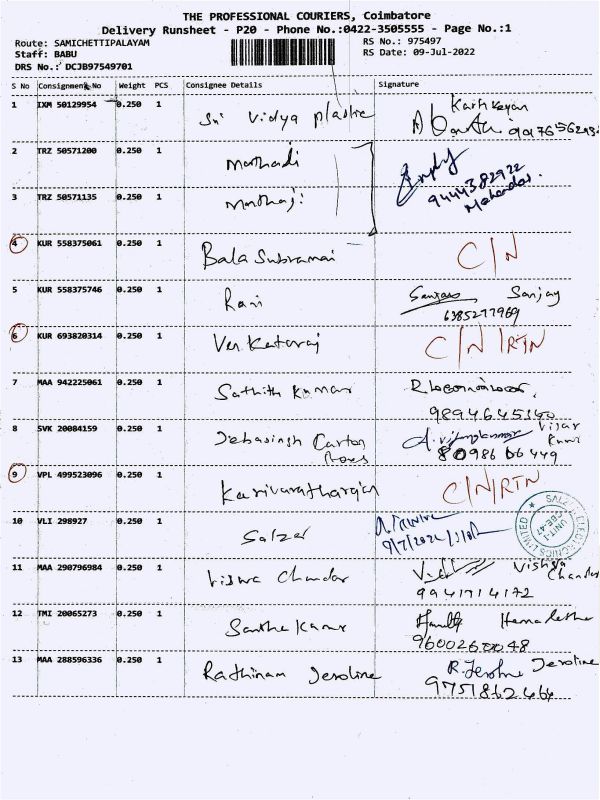 THE PROFESSIONAL COURIERS, Coimbatore
Delivery Runsheet - P20 - Phone No.:0422-3505555 - Page No.:1
Route: SAMICHETTIPALAYAM RS No.: 975497
Staff: BABU RS Date: 09-Jul-2022
DRS No.: DCJB97549701
S No Consignment No Weight PCS Consignee Details Signature
1 IXM 50129954 0.250 1 Sri Vidya plastic Karthikeyan
2 TRZ 50571200 0.250 1
9444382922
3 TRZ 50571135 0.250 1 Mahendar.
4 KUR 558375061 0.250 1 Bala Subramai C/N
5 KUR 558375746 0.250 1 Ravi Sanjay
6385277969
6 KUR 693820314 0.250 1 Venkataraj C/N/RTN
7 MAA 942225061 0.250 1 Sathith Kumar
9894645340
8 SVK 20084159 0.250 1 Jebasingh Carton Vijay
80986 66449
9 VPL 499523096 0.250 1 Karivaratharajan C/N/RTN
10 VLI 298927 0.250 1 Salzer
9/7/2022
SALZER ELECTRONICS LIMITED
UNIT-I
CBE-47
11 MAA 290796984 0.250 1 Viswa Chandar Vishva Chandar
9941714172
12 TMI 20065273 0.250 1 Santhe Kumar
9600260048
13 MAA 288596336 0.250 1 Rathinam Jeroline R. Jeroline Jeroline
9751862464